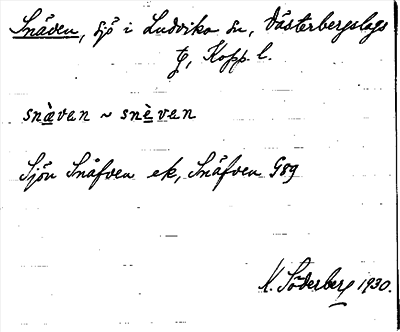 Snäven, sjö i Ludvika sn, Västerbergslags
tg, Kopp. l.
snàven ~ snèven
Sjön Snäfven ek, Snäfven G89
K. Söderberg 1930.